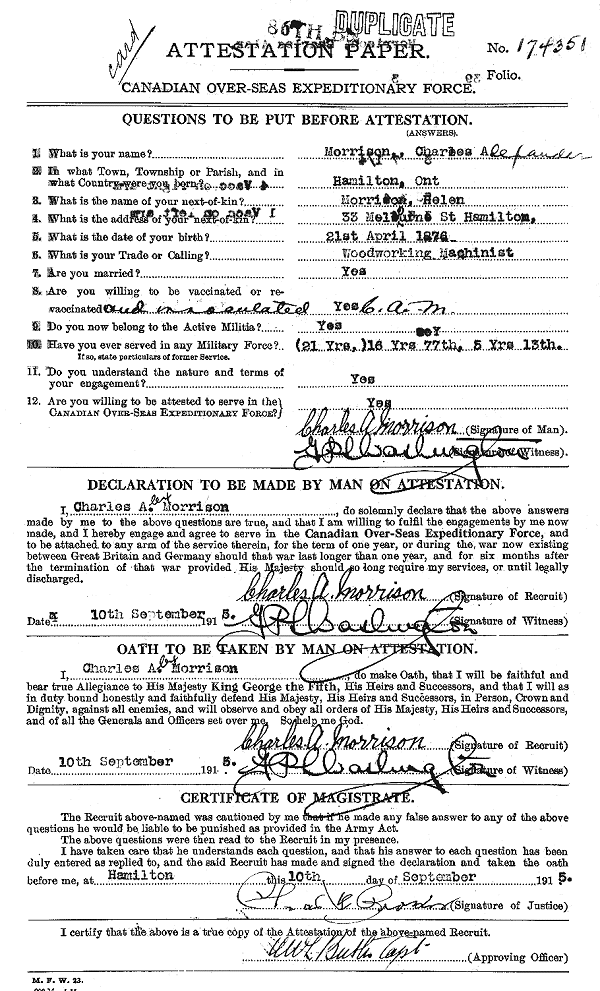 86TH DUPLICATE
card
ATTESTATION PAPER.
No. 174351
Folio.
CANADIAN OVER-SEAS EXPEDITIONARY FORCE.
QUESTIONS TO BE PUT BEFORE ATTESTATION.
(ANSWERS).
1. What is your name? Morrison, Charles Alexander
2. In what Town, Township or Parish, and in
what Country were you born? Hamilton, Ont
3. What is the name of your next-of-kin? Morrison, Helen
4. What is the address of your next-of-kin? 33 Melbourne St Hamilton,
5. What is the date of your birth? 21st April 1876
6. What is your Trade or Calling? Woodworking Machinist
7. Are you married? Yes
8. Are you willing to be vaccinated or re-
vaccinated and inoculated Yes C. A. M
9. Do you now belong to the Active Militia? Yes
10. Have you ever served in any Military Force? (21 Yrs,) 16 Yrs 77th, 5 Yrs 13th.
If so, state particulars of former Service.
11. Do you understand the nature and terms of
your engagement? Yes
12. Are you willing to be attested to serve in the
CANADIAN OVER-SEAS EXPEDITIONARY FORCE? Yes
Charles A. Morrison (Signature of Man).
(Signature of Witness).
DECLARATION TO BE MADE BY MAN ON ATTESTATION.
I, Charles A. Morrison, do solemnly declare that the above answers
made by me to the above questions are true, and that I am willing to fulfil the engagements by me now
made, and I hereby engage and agree to serve in the Canadian Over-Seas Expeditionary Force, and
to be attached to any arm of the service therein, for the term of one year, or during the war now existing
between Great Britain and Germany should that war last longer than one year, and for six months after
the termination of that war provided His Majesty should so long require my services, or until legally
discharged.
Charles A. Morrison (Signature of Recruit)
Date 10th September 1915. (Signature of Witness)
OATH TO BE TAKEN BY MAN ON ATTESTATION.
I, Charles A. Morrison, do make Oath, that I will be faithful and
bear true Allegiance to His Majesty King George the Fifth, His Heirs and Successors, and that I will as
in duty bound honestly and faithfully defend His Majesty, His Heirs and Successors, in Person, Crown and
Dignity, against all enemies, and will observe and obey all orders of His Majesty, His Heirs and Successors,
and of all the Generals and Officers set over me. So help me God.
Charles A. Morrison (Signature of Recruit)
Date 10th September 1915. (Signature of Witness)
CERTIFICATE OF MAGISTRATE.
The Recruit above-named was cautioned by me that if he made any false answer to any of the above
questions he would be liable to be punished as provided in the Army Act.
The above questions were then read to the Recruit in my presence.
I have taken care that he understands each question, and that his answer to each question has been
duly entered as replied to, and the said Recruit has made and signed the declaration and taken the oath
before me, at Hamilton this 10th. day of September 1915.
(Signature of Justice)
I certify that the above is a true copy of the Attestation of the above-named Recruit.
Capt (Approving Officer)
M. F. W. 23.